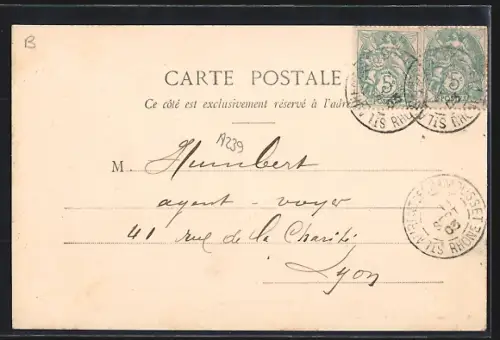 B
CARTE POSTALE
Ce côté est exclusivement réservé à l'adresse
A239
M. Humbert
agent-voyer
41 rue de la Charité
Lyon
5
5
ST LAURENT DE CHAMOUSSET
SEPT
03
RHONE